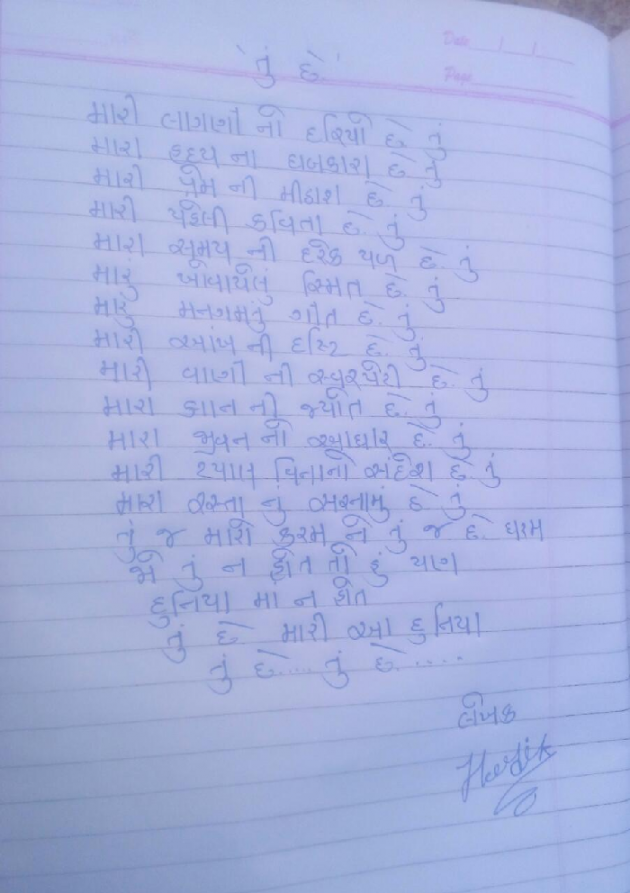 'તું છે'
Date / /
Page
મારી લાગણી નો દરિયો છે તું
મારા હૃદય ના ધબકારા છે તું
મારી પ્રેમ ની મીઠાશ છે તું
મારી પહેલી કવિતા છે તું
મારા સમય ની દરેક પળ છે તું
મારું ખોવાયેલું સ્મિત છે તું
મારું મનગમતું ગીત છે તું
મારી આંખ ની દષ્ટિ છે તું
મારી વાણી ની સ્વરપેટી છે તું
મારા જ્ઞાન ની જ્યોત છે તું
મારા જીવન નો આધાર છે તું
મારી ટપાલ વિનાનો સંદેશ છે તું
મારા રસ્તા નું સરનામું છે તું
તું જ મારો કરમ ને તું જ છે ધરમ
જો તું ન હોત તો હું પણ
દુનિયા મા ન હોત
તું છે મારી આ દુનિયા
તું છે.... તું છે.....
લેખક
Hardik